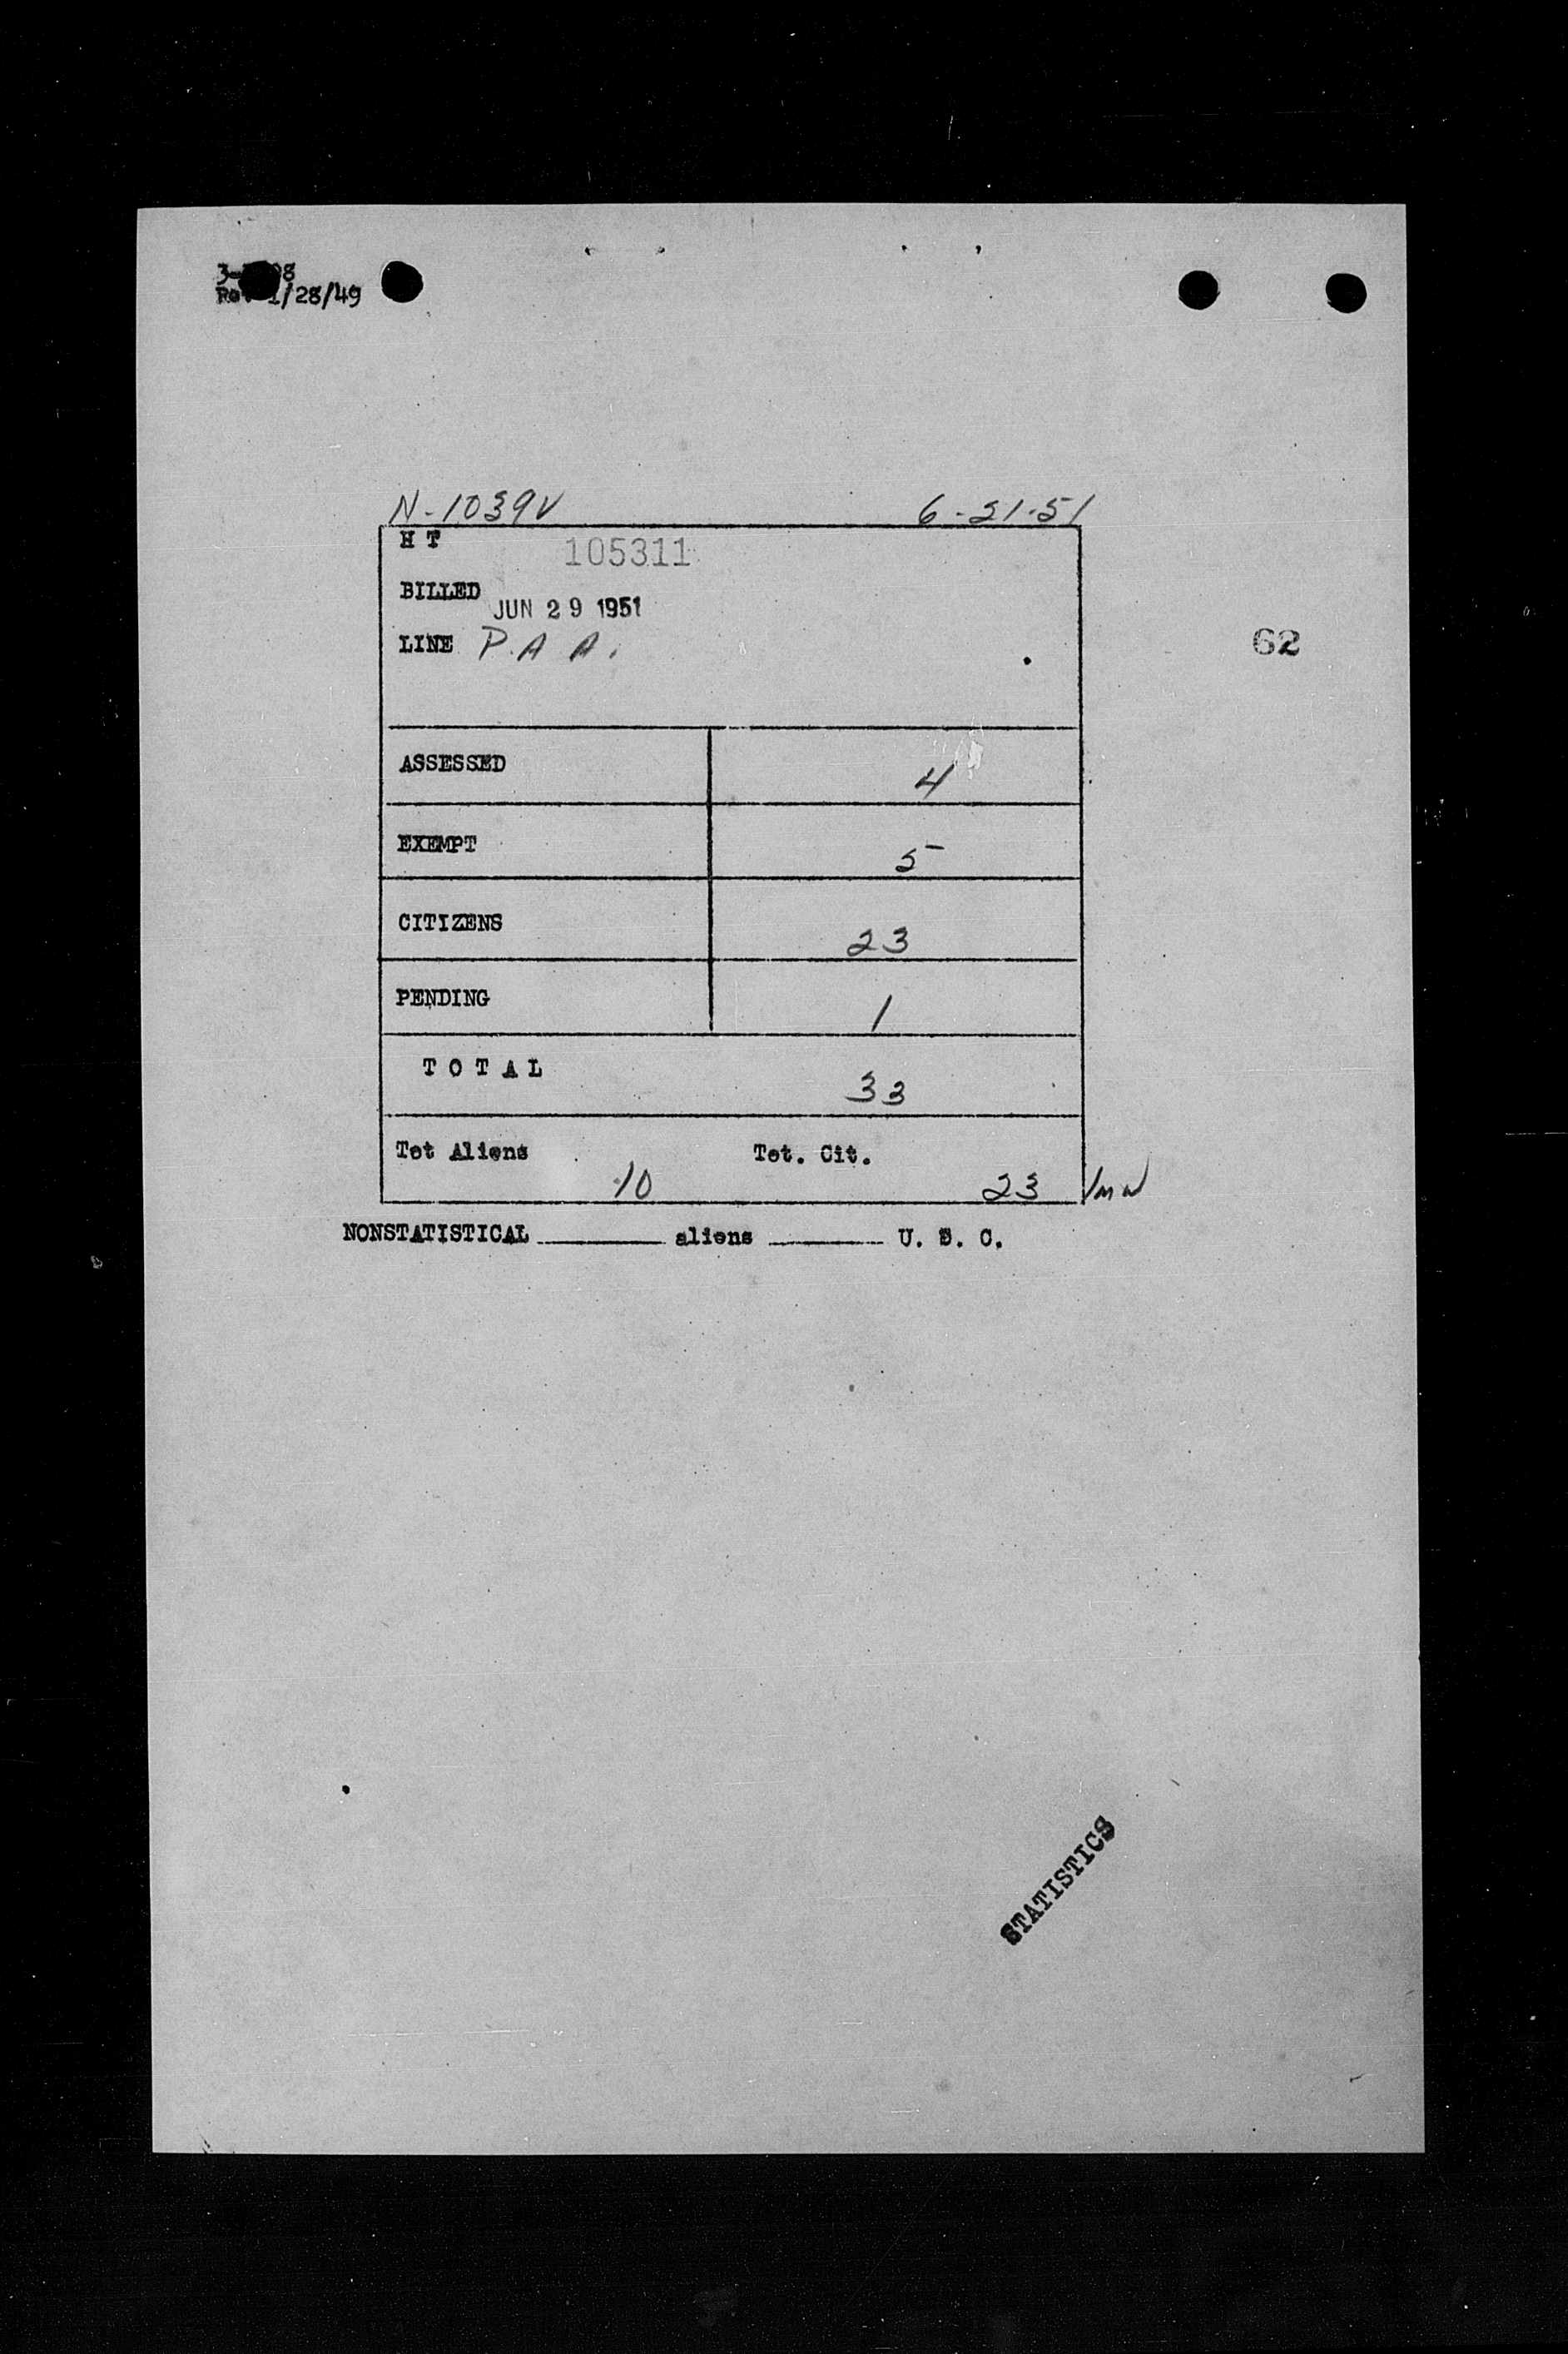 Rev 1/28/49
N-1039V 6-21-51
H T 105311
BILLED JUN 29 1951
LINE P.A A.
62
ASSESSED 4
EXEMPT 5
CITIZENS 23
PENDING 1
T O T A L 33
Tot Aliens 10 Tot. Cit. 23
NONSTATISTICAL ________ aliens ________ U. S. C.
STATISTICS